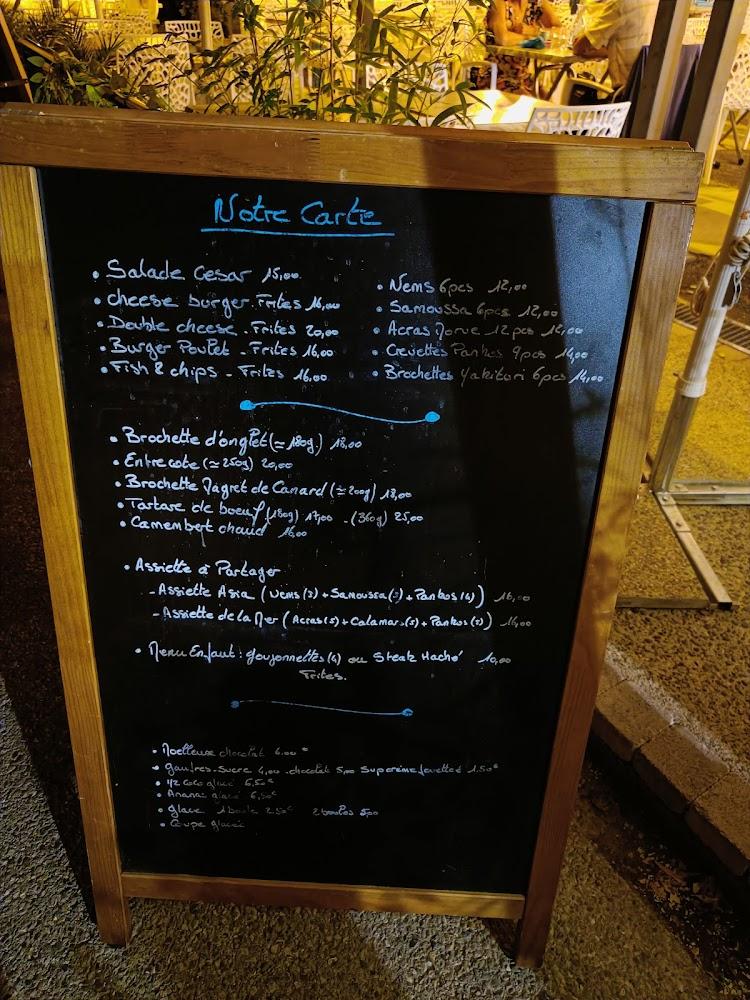 Notre Carte
• Salade Cesar 15,00
• cheese burger. Frites 16,00
• Double cheese - Frites 20,00
• Burger Poulet - Frites 16,00
• Fish & chips - Frites 16,00
• Nems 6pcs 12,00
• Samoussa 6pcs 12,00
• Acras Morue 12pcs 12,00
• Crevettes Pankos 9pcs 14,00
• Brochettes Yakitori 6pcs 14,00
• Brochette d'onglet (≃ 180g.) 18,00
• Entrecote (≃ 250g) 20,00
• Brochette Magret de Canard (≃ 200g) 18,00
• Tartare de boeuf (180g) 17,00 - (360g) 25,00
• Camembert chaud 16,00
• Assiette a Partager
- Assiette Asia (Nems (3) + Samoussa (3) + Pankos (4)) 16,00
- Assiette de la Mer (Acras (5) + Calamar. (5) + Pankos (5)) 16,00
• Menu Enfant : goujonnettes (4) ou Steak Haché 10,00
Frites.
• Moelleuse chocolat 6.00 €
• gaufres - Sucre 4,00 - chocolat 5,00 Supplement 1.50€
• 1/2 coco glacé 6,50€
• Ananas glacé 6,50€
• glace 1 boule 2.50€ 2 boules 5,00
• Coupe glacée